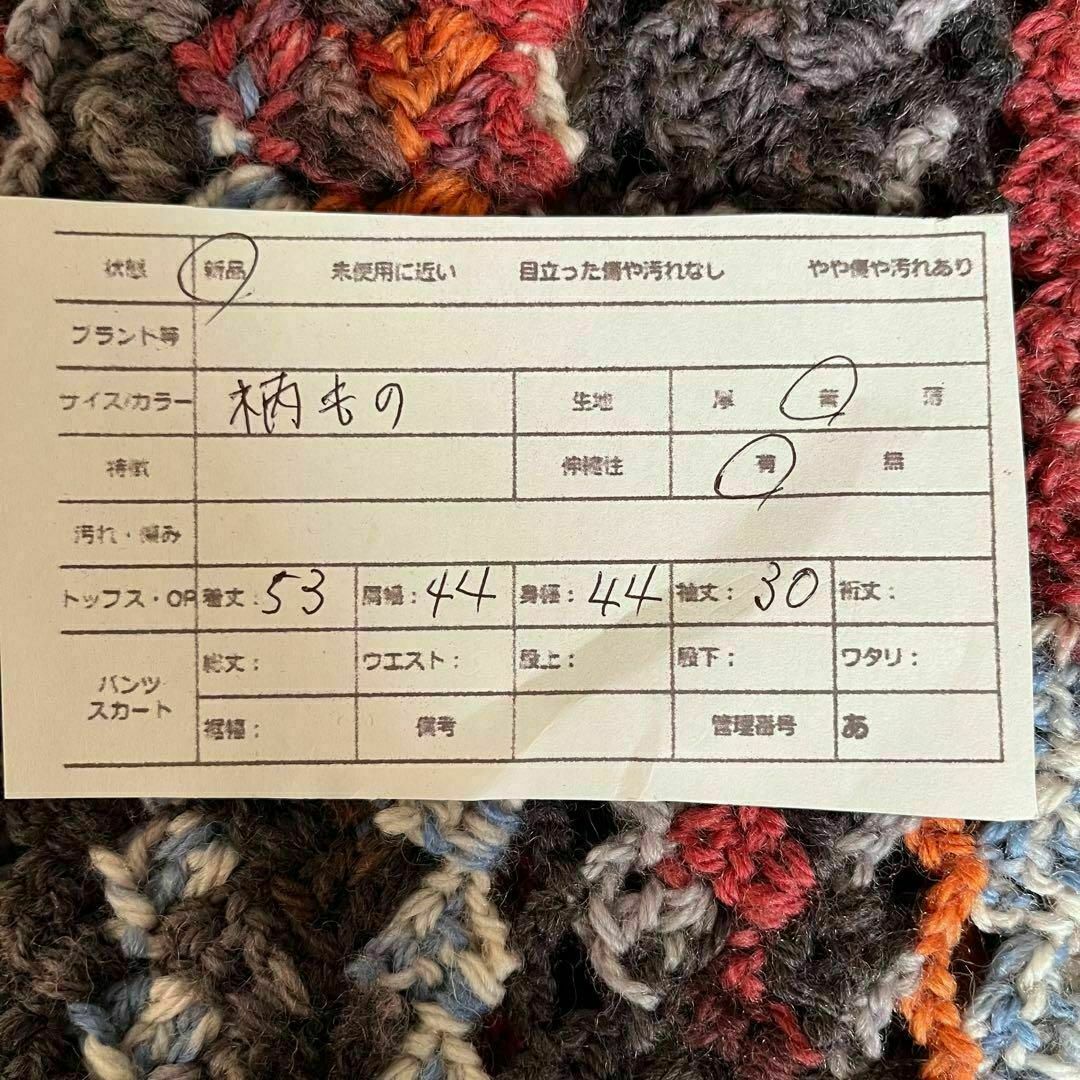 状態 新品 未使用に近い 目立った傷や汚れなし やや傷や汚れあり
ブランド等
サイズ/カラー 柄もの 生地 厚 普 薄
特徴 伸縮性 有 無
汚れ・傷み
トップス・OP 着丈：53 肩幅：44 身幅：44 袖丈：30 裄丈：
パンツ
スカート
総丈： ウエスト： 股上： 股下： ワタリ：
裾幅： 備考 管理番号 あ